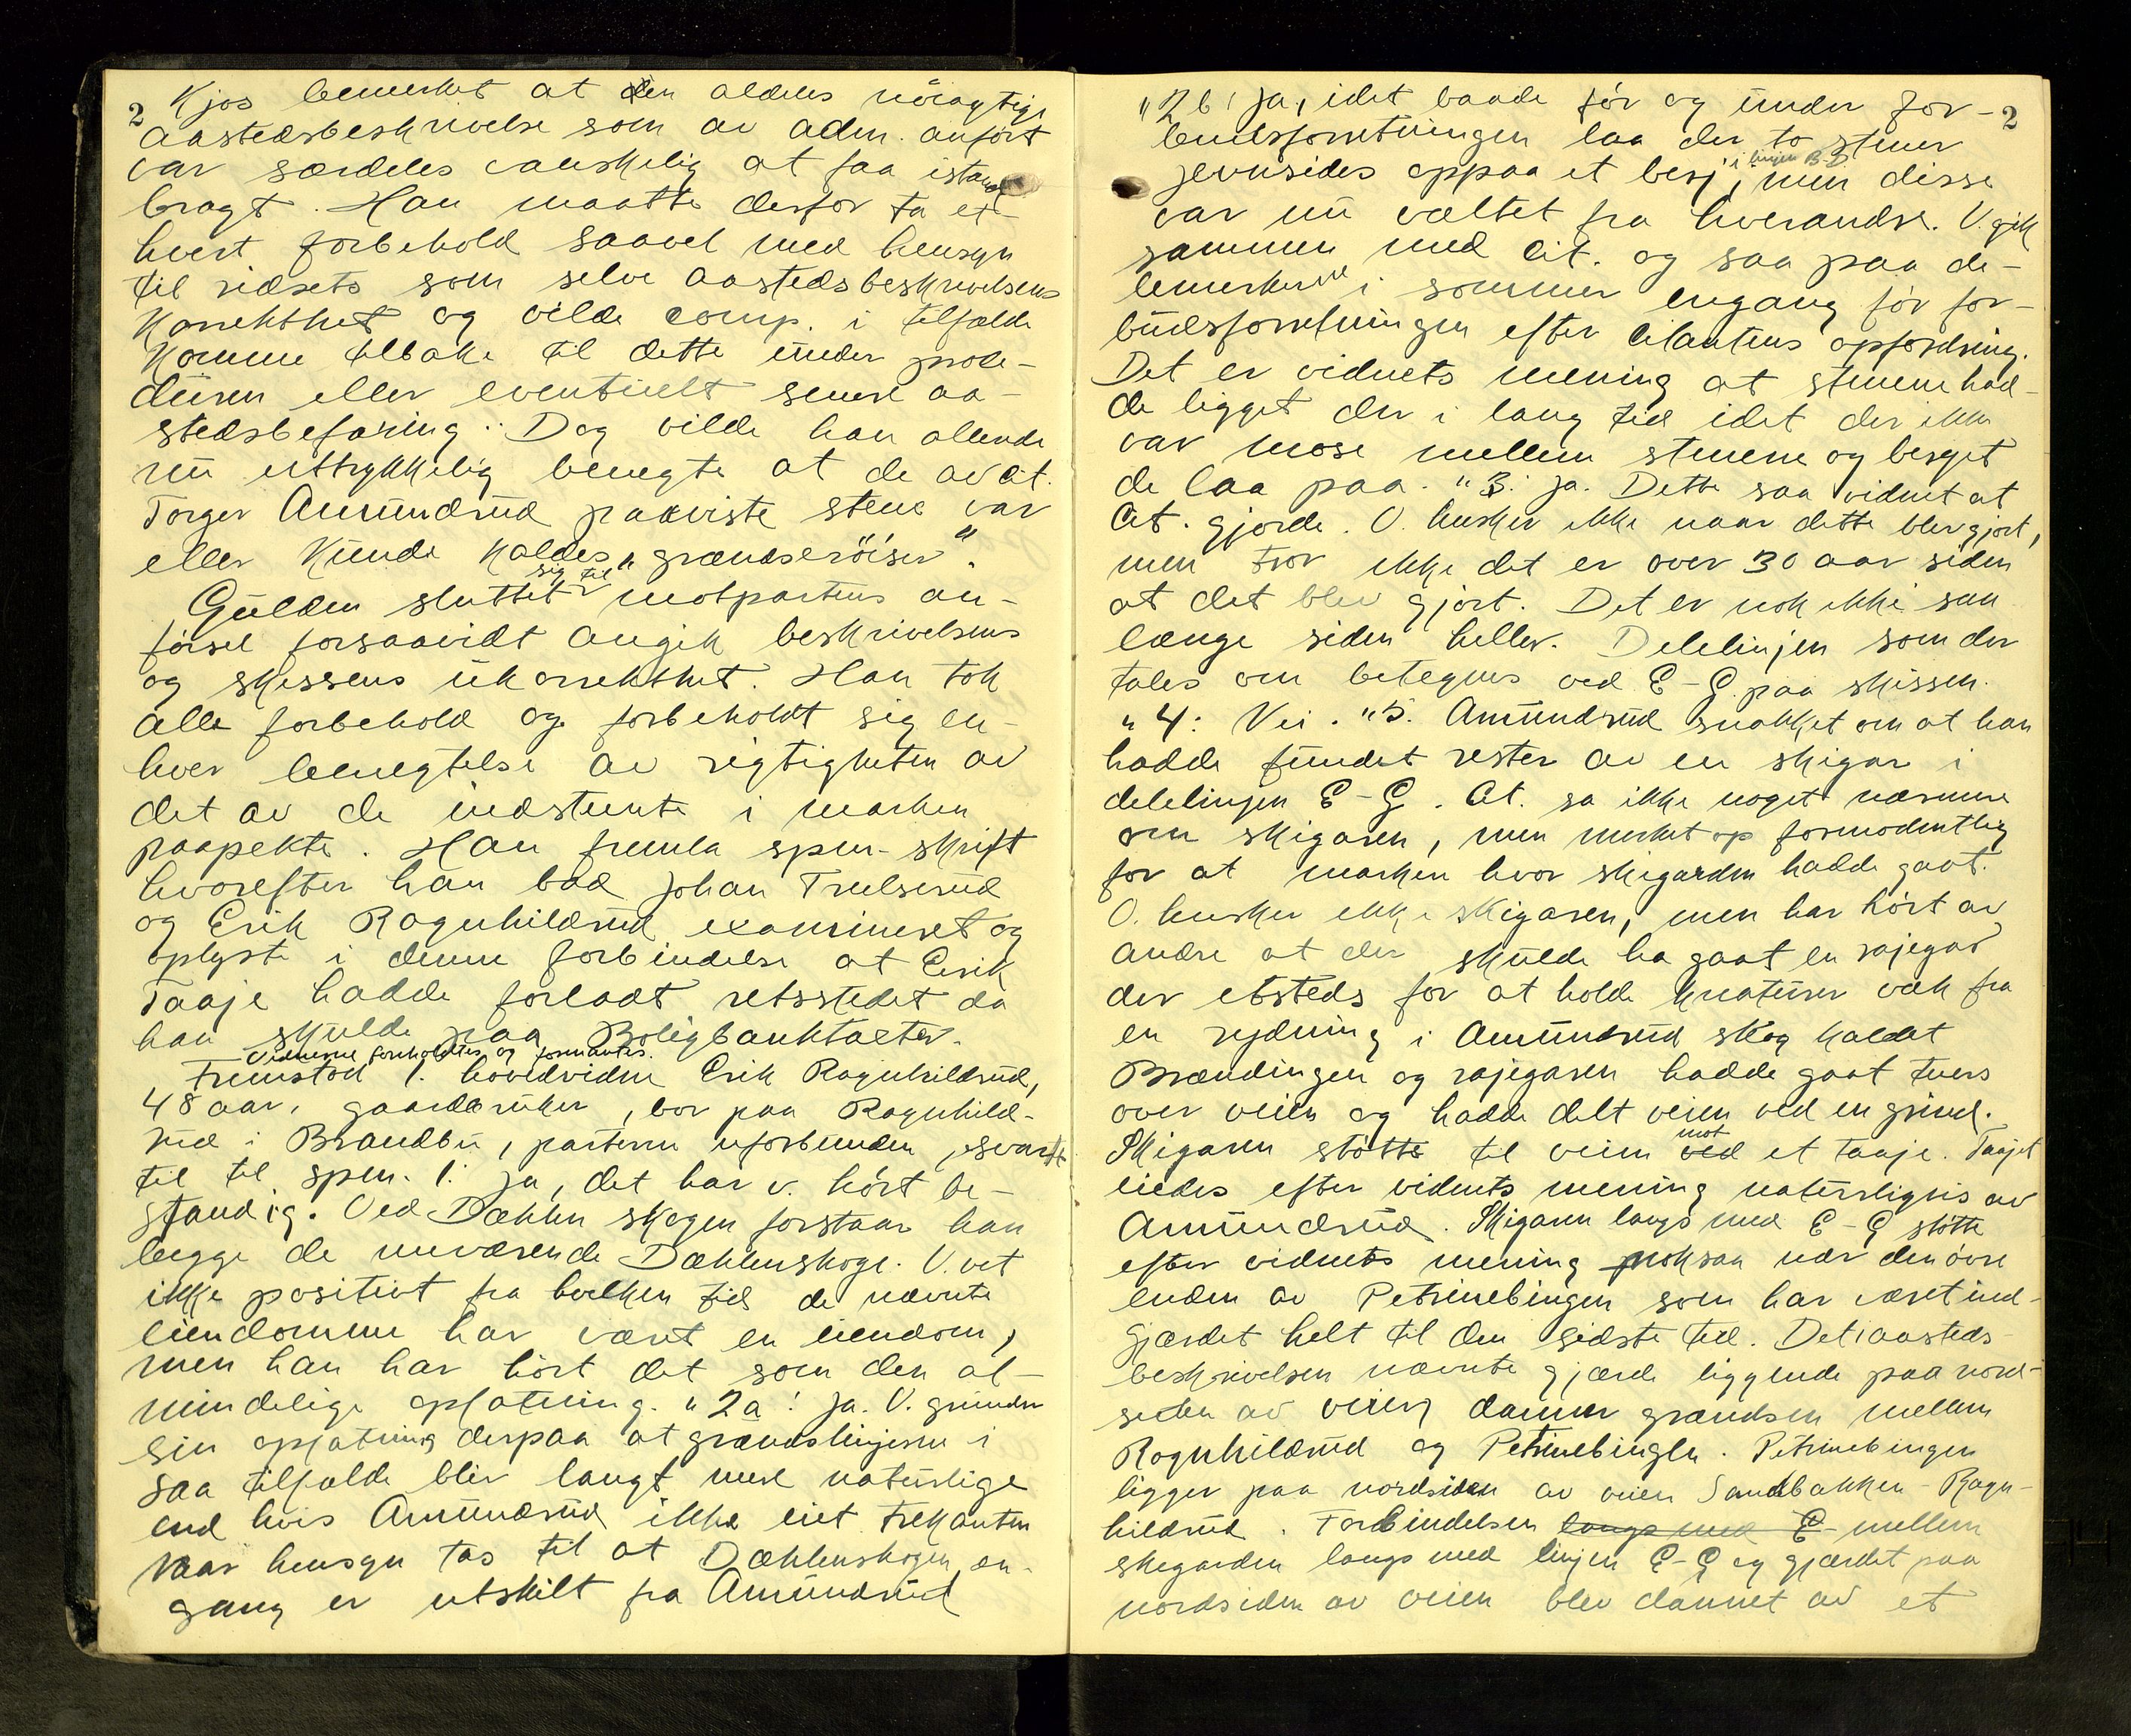 2
Kjos bemerket at den aldeles nöiagtige
aastedsbeskrivelse som av adm. anført
var særdeles vanskelig at faa istand-
bragt. Han maatte derfor ta et-
hvert forbehold saavel med hensyn
til ridsets som selve aastedsbeskrivelsens
korrekthet og vilde comp. i tilfælde
komme tilbake til dette under proce-
düren eller eventuelt senere aa-
stedsbefaring. Dog vilde han allerede
nu uttrykkelig benegte at de av cit.
Torger Amundrud paaviste stene var
eller kunde kaldes "grændseröiser".
Gulden sluttet sig til motpartens an-
førsel forsaavidt angik beskrivelsens
og skissens ukorrekthet. Han tok
alle forbehold og forbeholdt sig en-
hver benegtelse av rigtigheten av
det av de indstevnte i marken
paapekte. Han fremla spm.-skrift
hvorefter han bad Johan Trulserud
og Erik Ragnhildrud examineret og
oplyste i denne forbindelse at Erik
Taaje hadde forladt retsstedet da
han skulde paa Boligbanktakster.
Vidnerne foreholdtes og formantes.
Fremstod 1. hovedvidne Erik Ragnhildrud,
48 aar, gaardbruker, bor paa Ragnhild-
rud i Brandbu, parterne uforbunden, svart
til til spm. 1: Ja, det har v. hørt be-
standig. Ved Dæhlen skogen forstaar han
begge de nuværende Dæhlenskoge. V. vet
ikke positivt fra hvilken tid de nævnte
eiendomme har været en eiendom,
men han har hört det som den al-
mindelige opfatning. "2a: Ja. V. grunder
sin opfatning derpaa at grændselinjerne i
saa tilfælde blir langt mere naturlige
end hvis Amundrud ikke eiet trekanten
naar hensyn tas til at Dæhlenskogen en-
gang er utskilt fra Amundrud
2
"2b: Ja, idet baade før og under for-
budsforretningen laa der to stener
jevnsides oppaa et berj i linjen B-D, men disse
var nu væltet fra hverandre. V. gik
sammen med cit. og saa paa de-
lemerkene i sommer engang før for-
budsforretningen efter citantens opfordring.
Det er vidnets mening at stenene had-
de ligget der i lang tid idet der ikke
var mose mellem stenene og berget
de laa paa. "3: Ja. Dette saa vidnet at
Cit. gjorde. V. husker ikke naar dette blev gjort,
men tror ikke det er over 30 aar siden
at det blev gjort. Det er nok ikke saa
længe siden heller. Delelinjen som der
tales om betegnes ved E-G paa skissen.
"4: Nei. "5. Amundrud snakket om at han
hadde fundet rester av en skigar i
delelinjen E-G. Cit. sa ikke noget nærmere
om skigaren, men merket op formodentlig
for at marken hvor skigarden hadde gaat.
V. husker ikke skigaren, men har hørt av
andre at der skulde ha gaat en rajegar
der etsteds for at holde kreaturer væk fra
en rydning i Amundrud skog kaldt
Brændingen og rajegaren hadde gaat tvers
over veien og hadde delt veien ved en grind.
Skigaren støtte til veien ved mot et taaje. Taajet
eiedes efter vidnets mening naturligvis av
Amundrud. Skigaren langs med E-G støtte
efter vidnets mening noksaa nær den övre
enden av Petrinebingen som har været ind-
gjærdet helt til den sidste tid. Det i aasteds-
beskrivelsen nævnte gjærde liggende paa nord-
siden av veien danner grændsen mellem
Ragnhildrud og Petrinebingen. Petrinebingen
ligger paa nordsiden av veien Sandbakken-Ragn-
hildrud. Forbindelsen langs med E- mellem
skigarden langs med linjen E-G og gjærdet paa
nordsiden av veien blev dannet av et